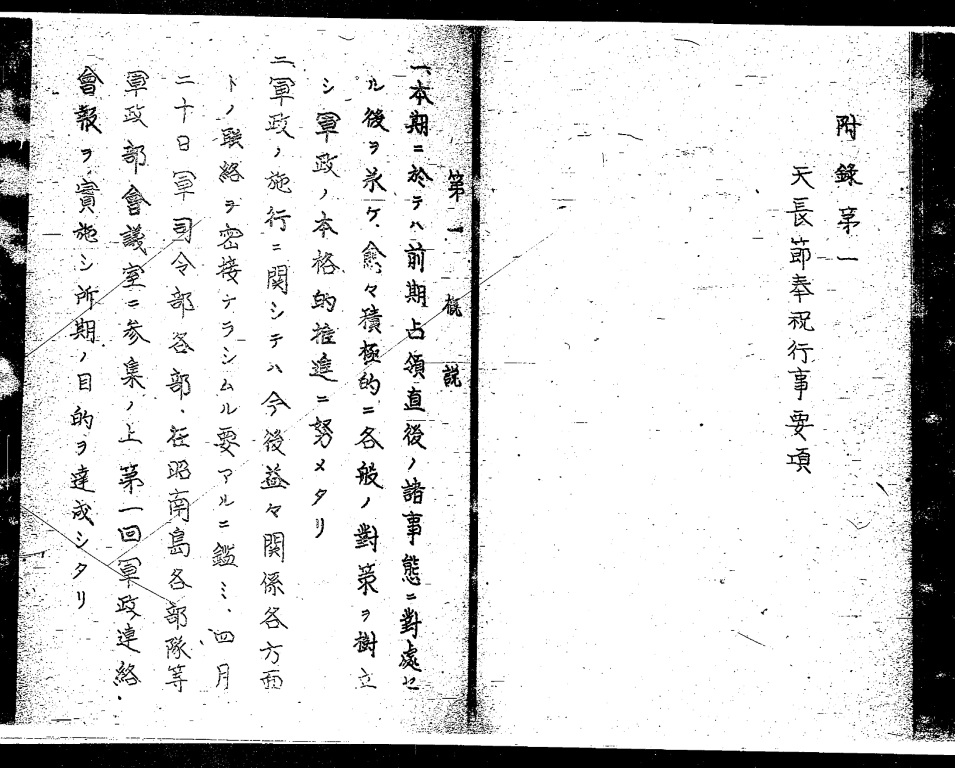 附錄第一
天長節奉祝行事要項
第一 概說
一、本期ニ於テハ前期占領直後ノ諸事態ニ對處セ
ル後ヲ承ケ愈々積極的ニ各般ノ對策ヲ樹立
シ軍政ノ本格的推進ニ努メタリ
二、軍政ノ施行ニ関シテハ今後益々関係各方面
トノ聯絡ヲ密接ナラシムル要アルニ鑑ミ、四月
二十日軍司令部各部、在昭南島各部隊等
軍政部會議室ニ參集ノ上第一回軍政連絡
會報ヲ實施シ所期ノ目的ヲ達成シタリ